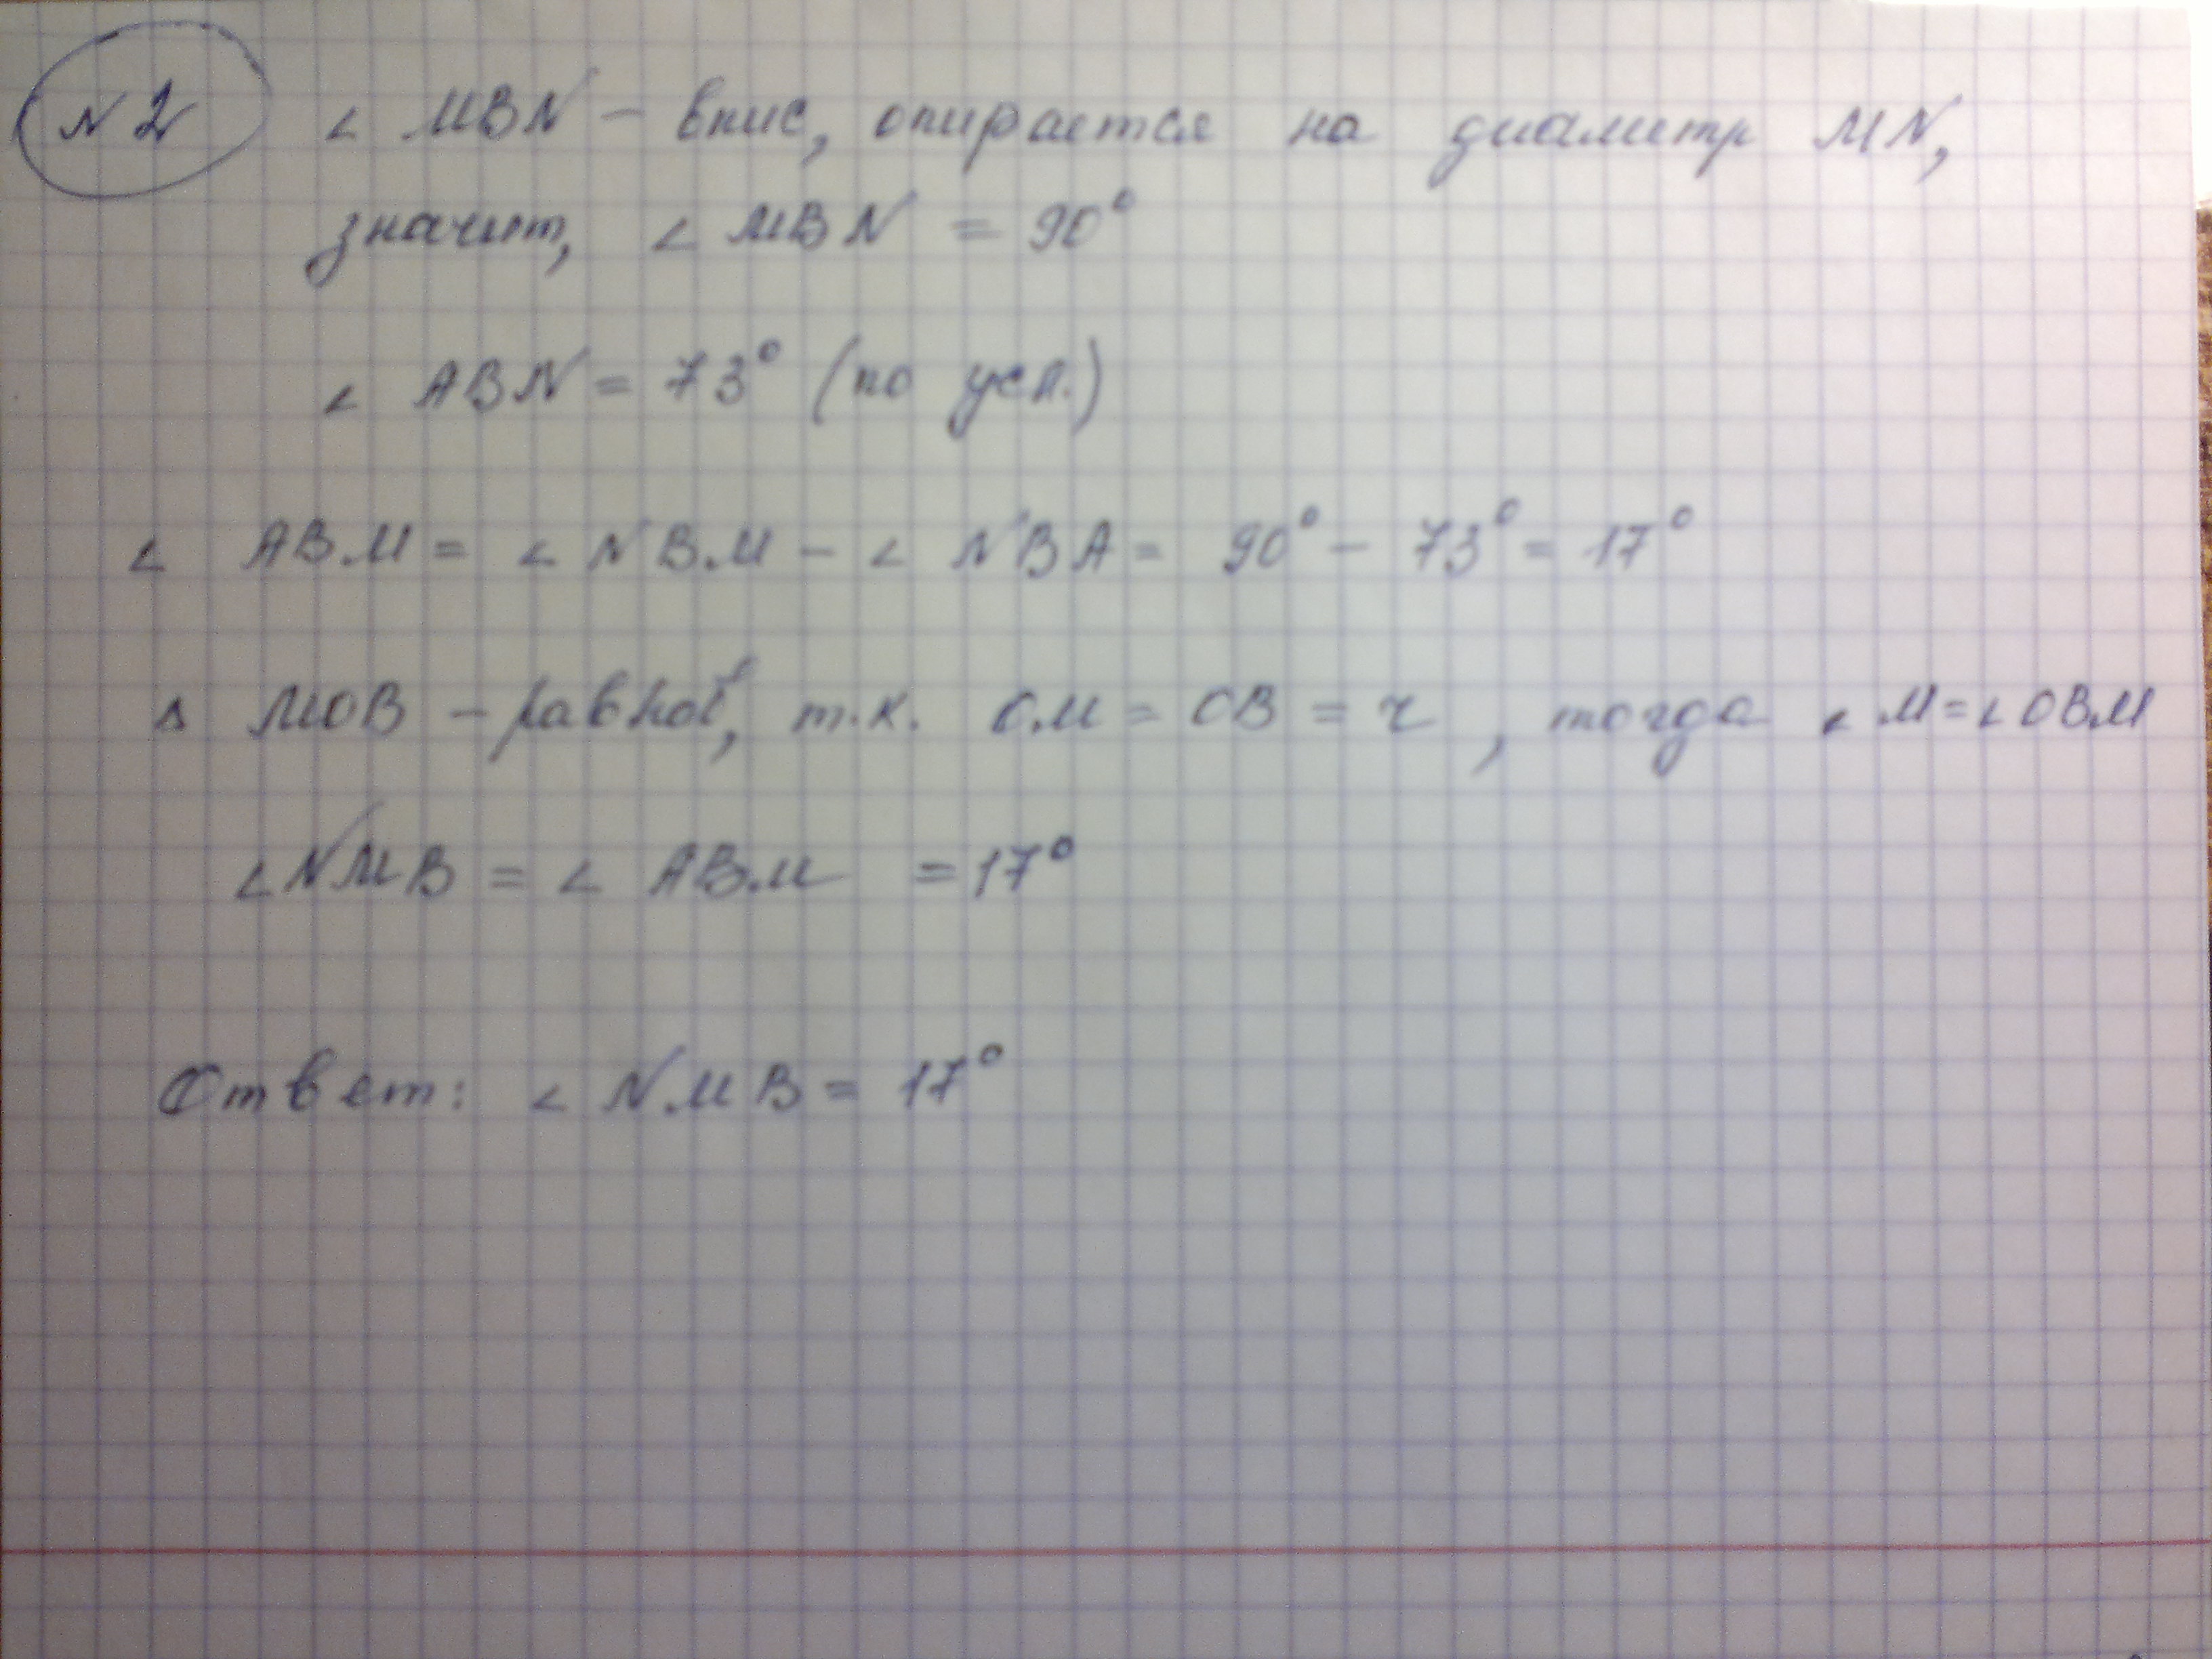 №2 ∠ MBN – впис, опирается на диаметр MN,
значит, ∠ MBN = 90°
∠ ABN = 73° (по усл.)
∠ ABM = ∠ NBM – ∠ NBA = 90° – 73° = 17°
Δ MOB – равноб, т.к. OM = OB = r, тогда ∠ M = ∠ OBM
∠ NMB = ∠ ABM = 17°
Ответ: ∠ NMB = 17°